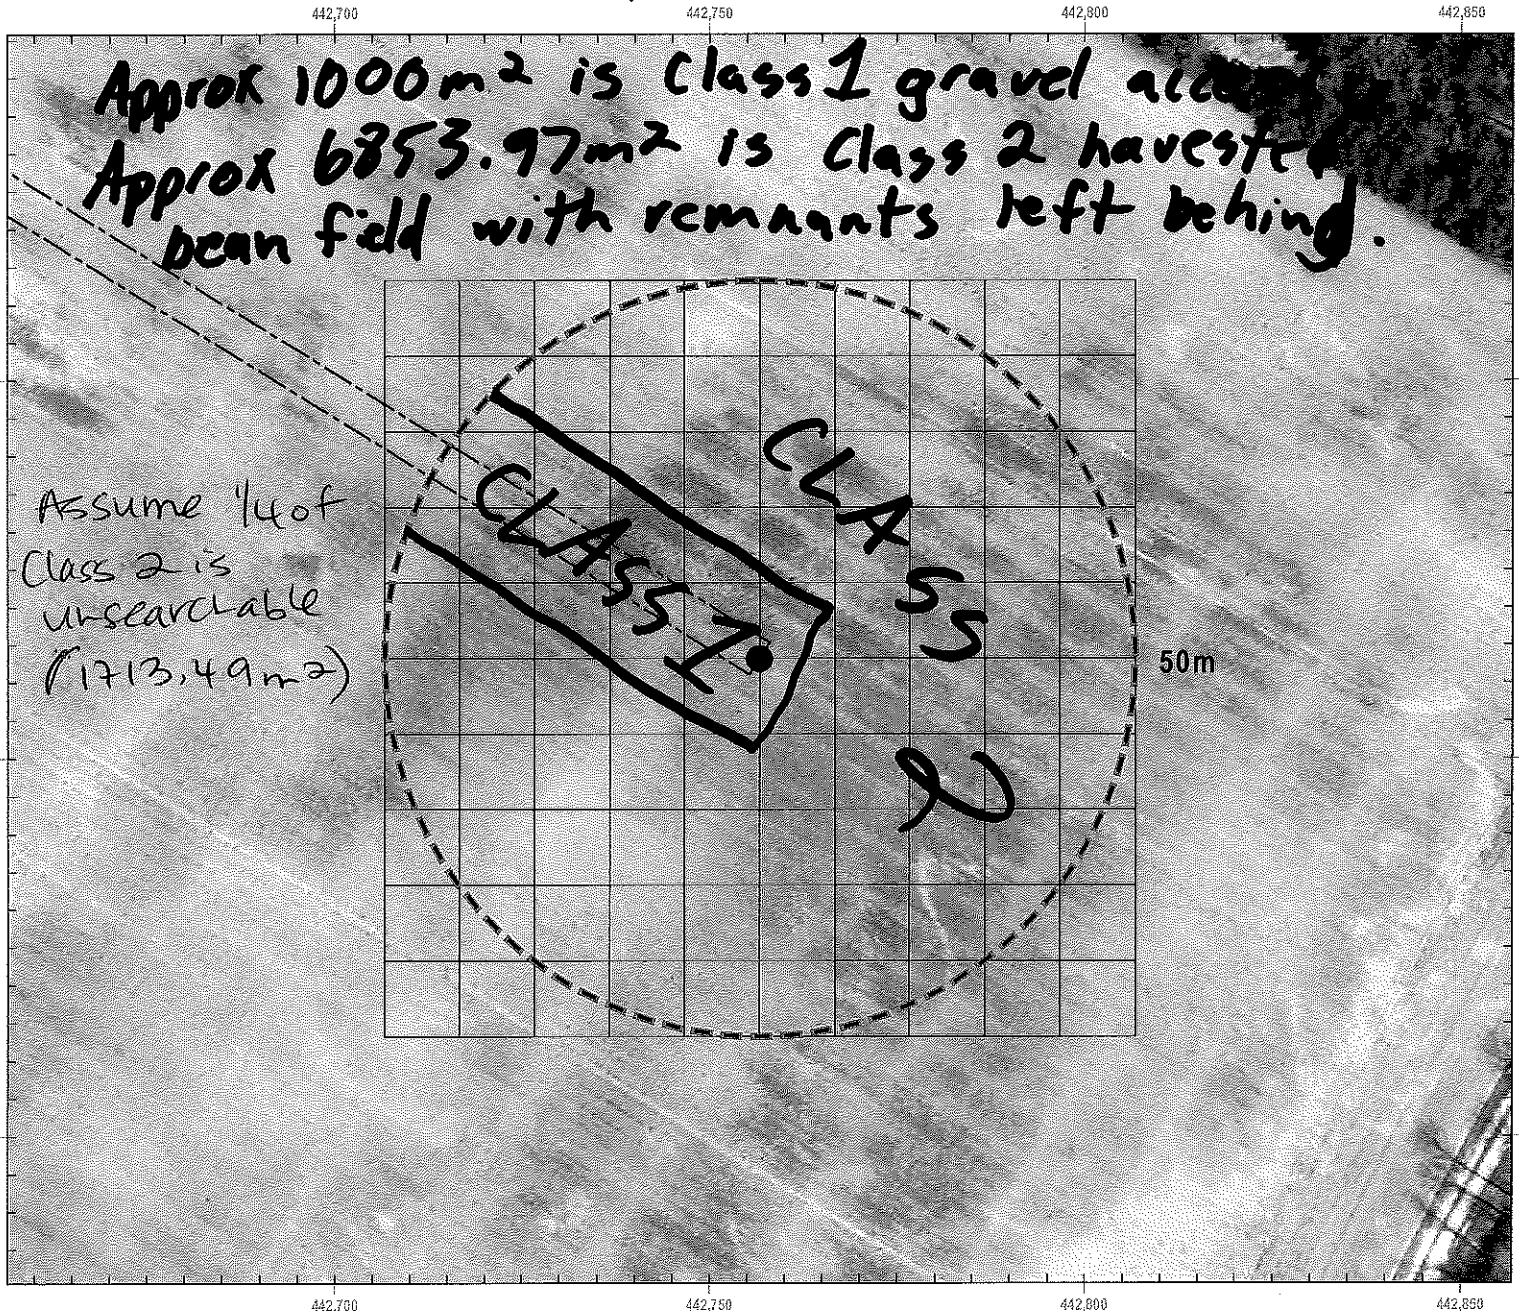 442,700 442,750 442,800 442,850
Approx 1000m² is Class 1 gravel
Approx 6853.97m² is Class 2 havested
bean field with remnants left behind.
CLASS 1
CLASS 2
Assume 1/4 of
Class 2 is
unsearchable
(1713.49m²)
50m
442,700 442,750 442,800 442,850